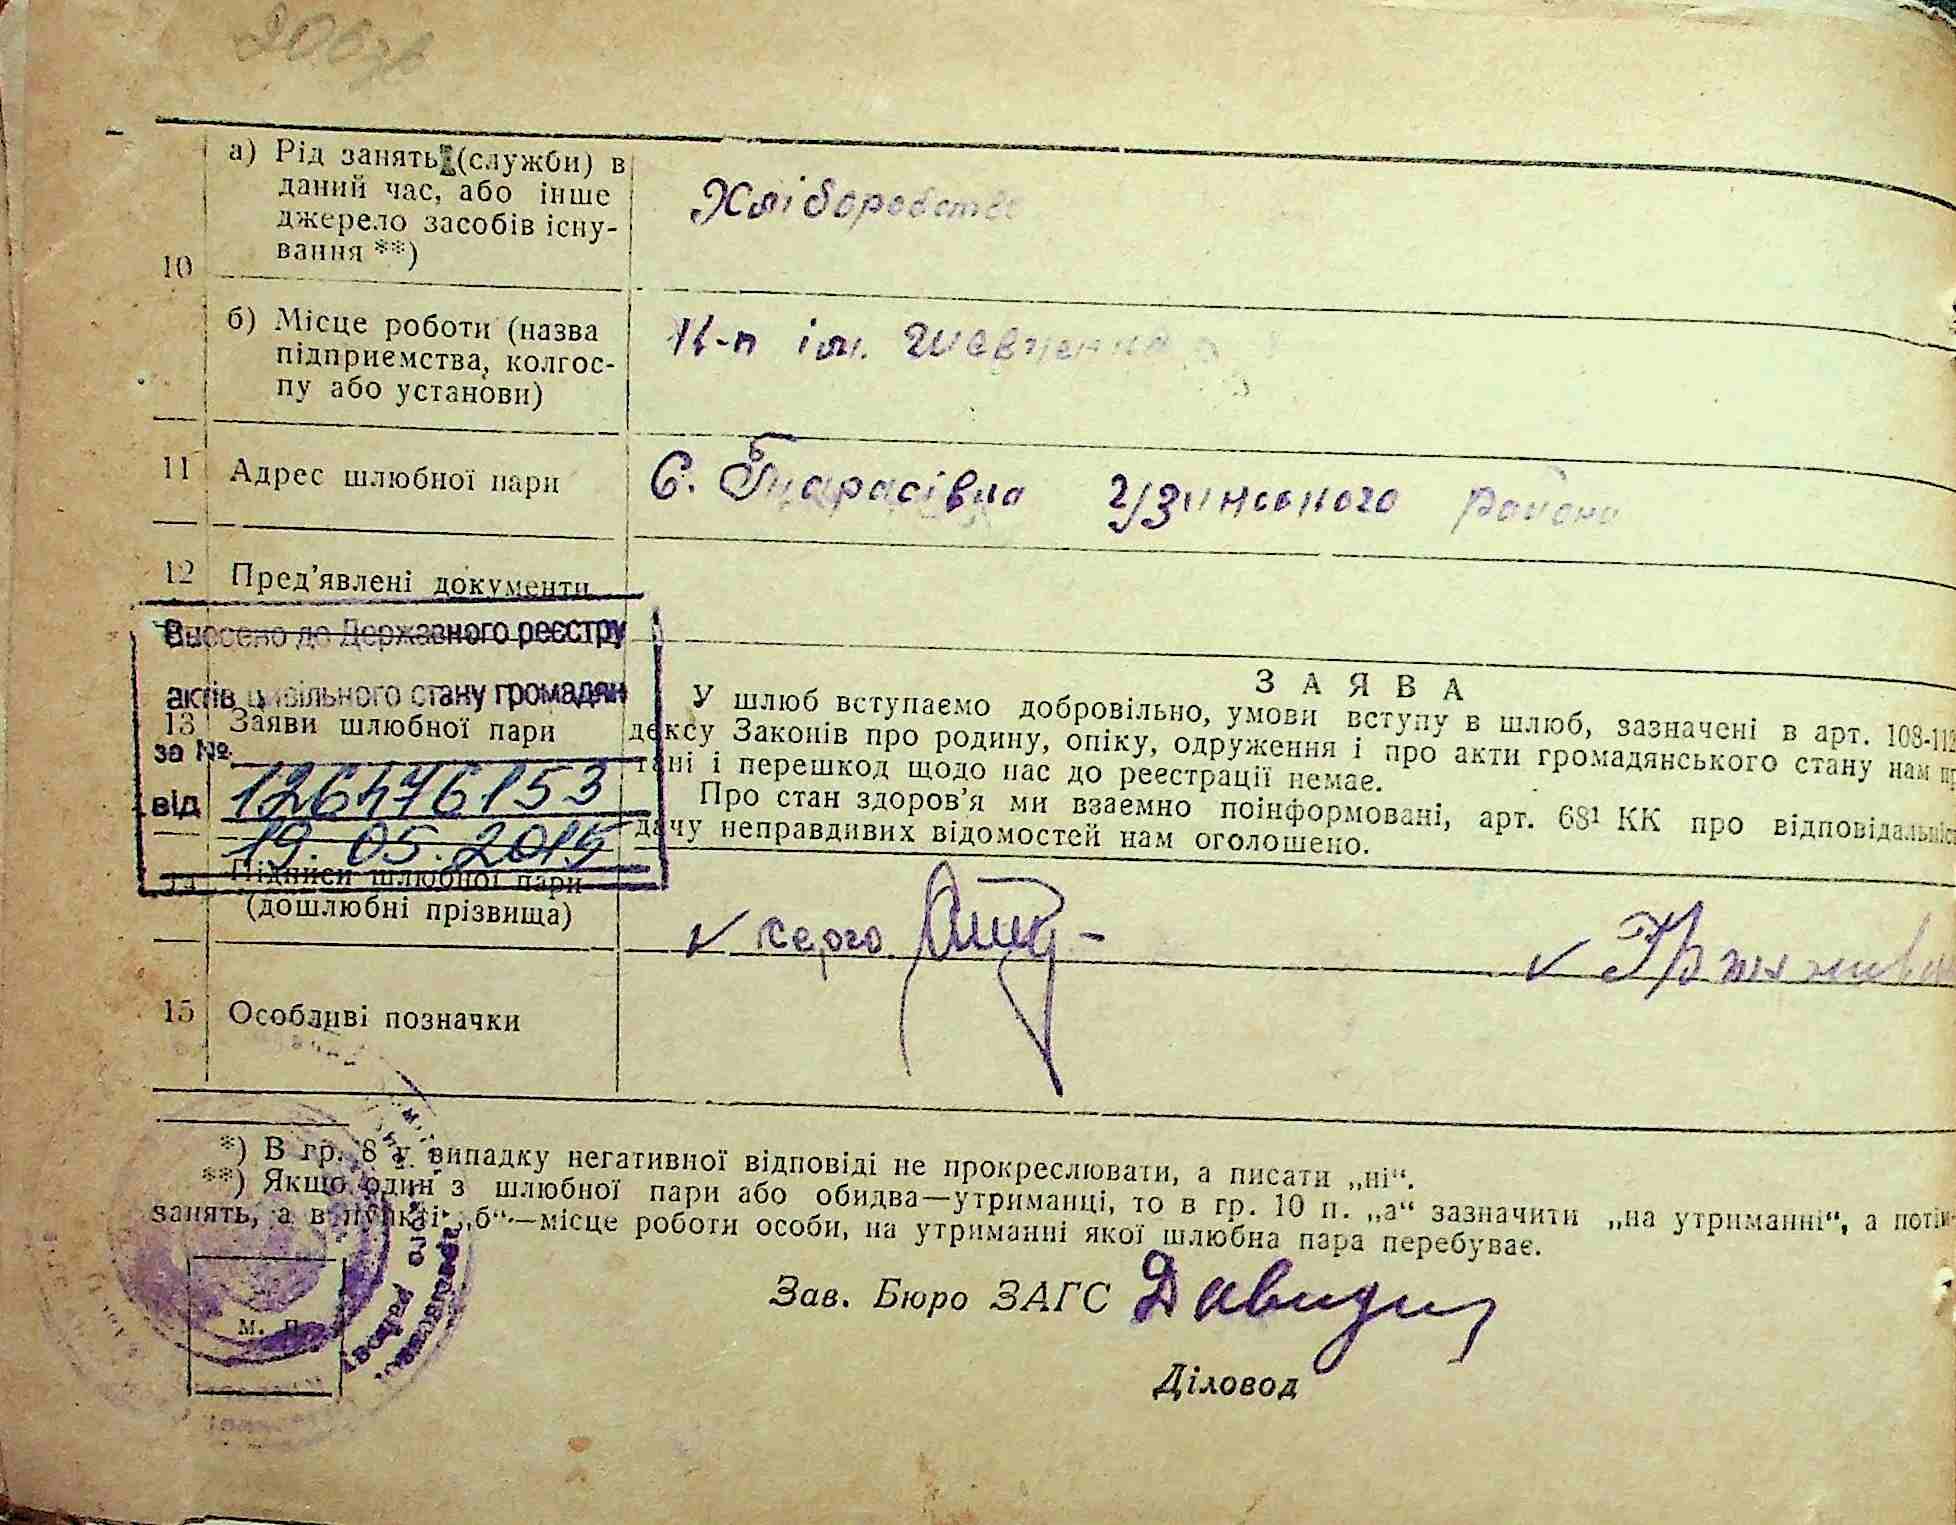 10
а) Рід занять (служби) в
даний час, або інше
джерело засобів існу-
вання **)
Хліборобство
б) Місце роботи (назва
підприємства, колгос-
пу або установи)
К-п ім. Шевченка
11 Адрес шлюбної пари
С. Тарасівка Узинського району
12 Пред'явлені документи
Внесено до Державного реєстру
актів цивільного стану громадян
за №
126476153
від
19.05.2015
13 Заяви шлюбної пари
ЗАЯВА
У шлюб вступаємо добровільно, умови вступу в шлюб, зазначені в арт. 108-112
дексу Законів про родину, опіку, одруження і про акти громадянського стану нам
тані і перешкод щодо нас до реєстрації немає.
Про стан здоров'я ми взаємно поінформовані, арт. 68¹ КК про відповідальніс
дачу неправдивих відомостей нам оголошено.
14 Підписи шлюбної пари
(дошлюбні прізвища)
15 Особливі позначки
*) В гр. 8 у випадку негативної відповіді не прокреслювати, а писати „ні“.
**) Якщо один з шлюбної пари або обидва—утриманці, то в гр. 10 п. „а“ зазначити „на утриманні“, а потім
занять, а в пункті „б“—місце роботи особи, на утриманні якої шлюбна пара перебуває.
м. п.
Зав. Бюро ЗАГС
Діловод